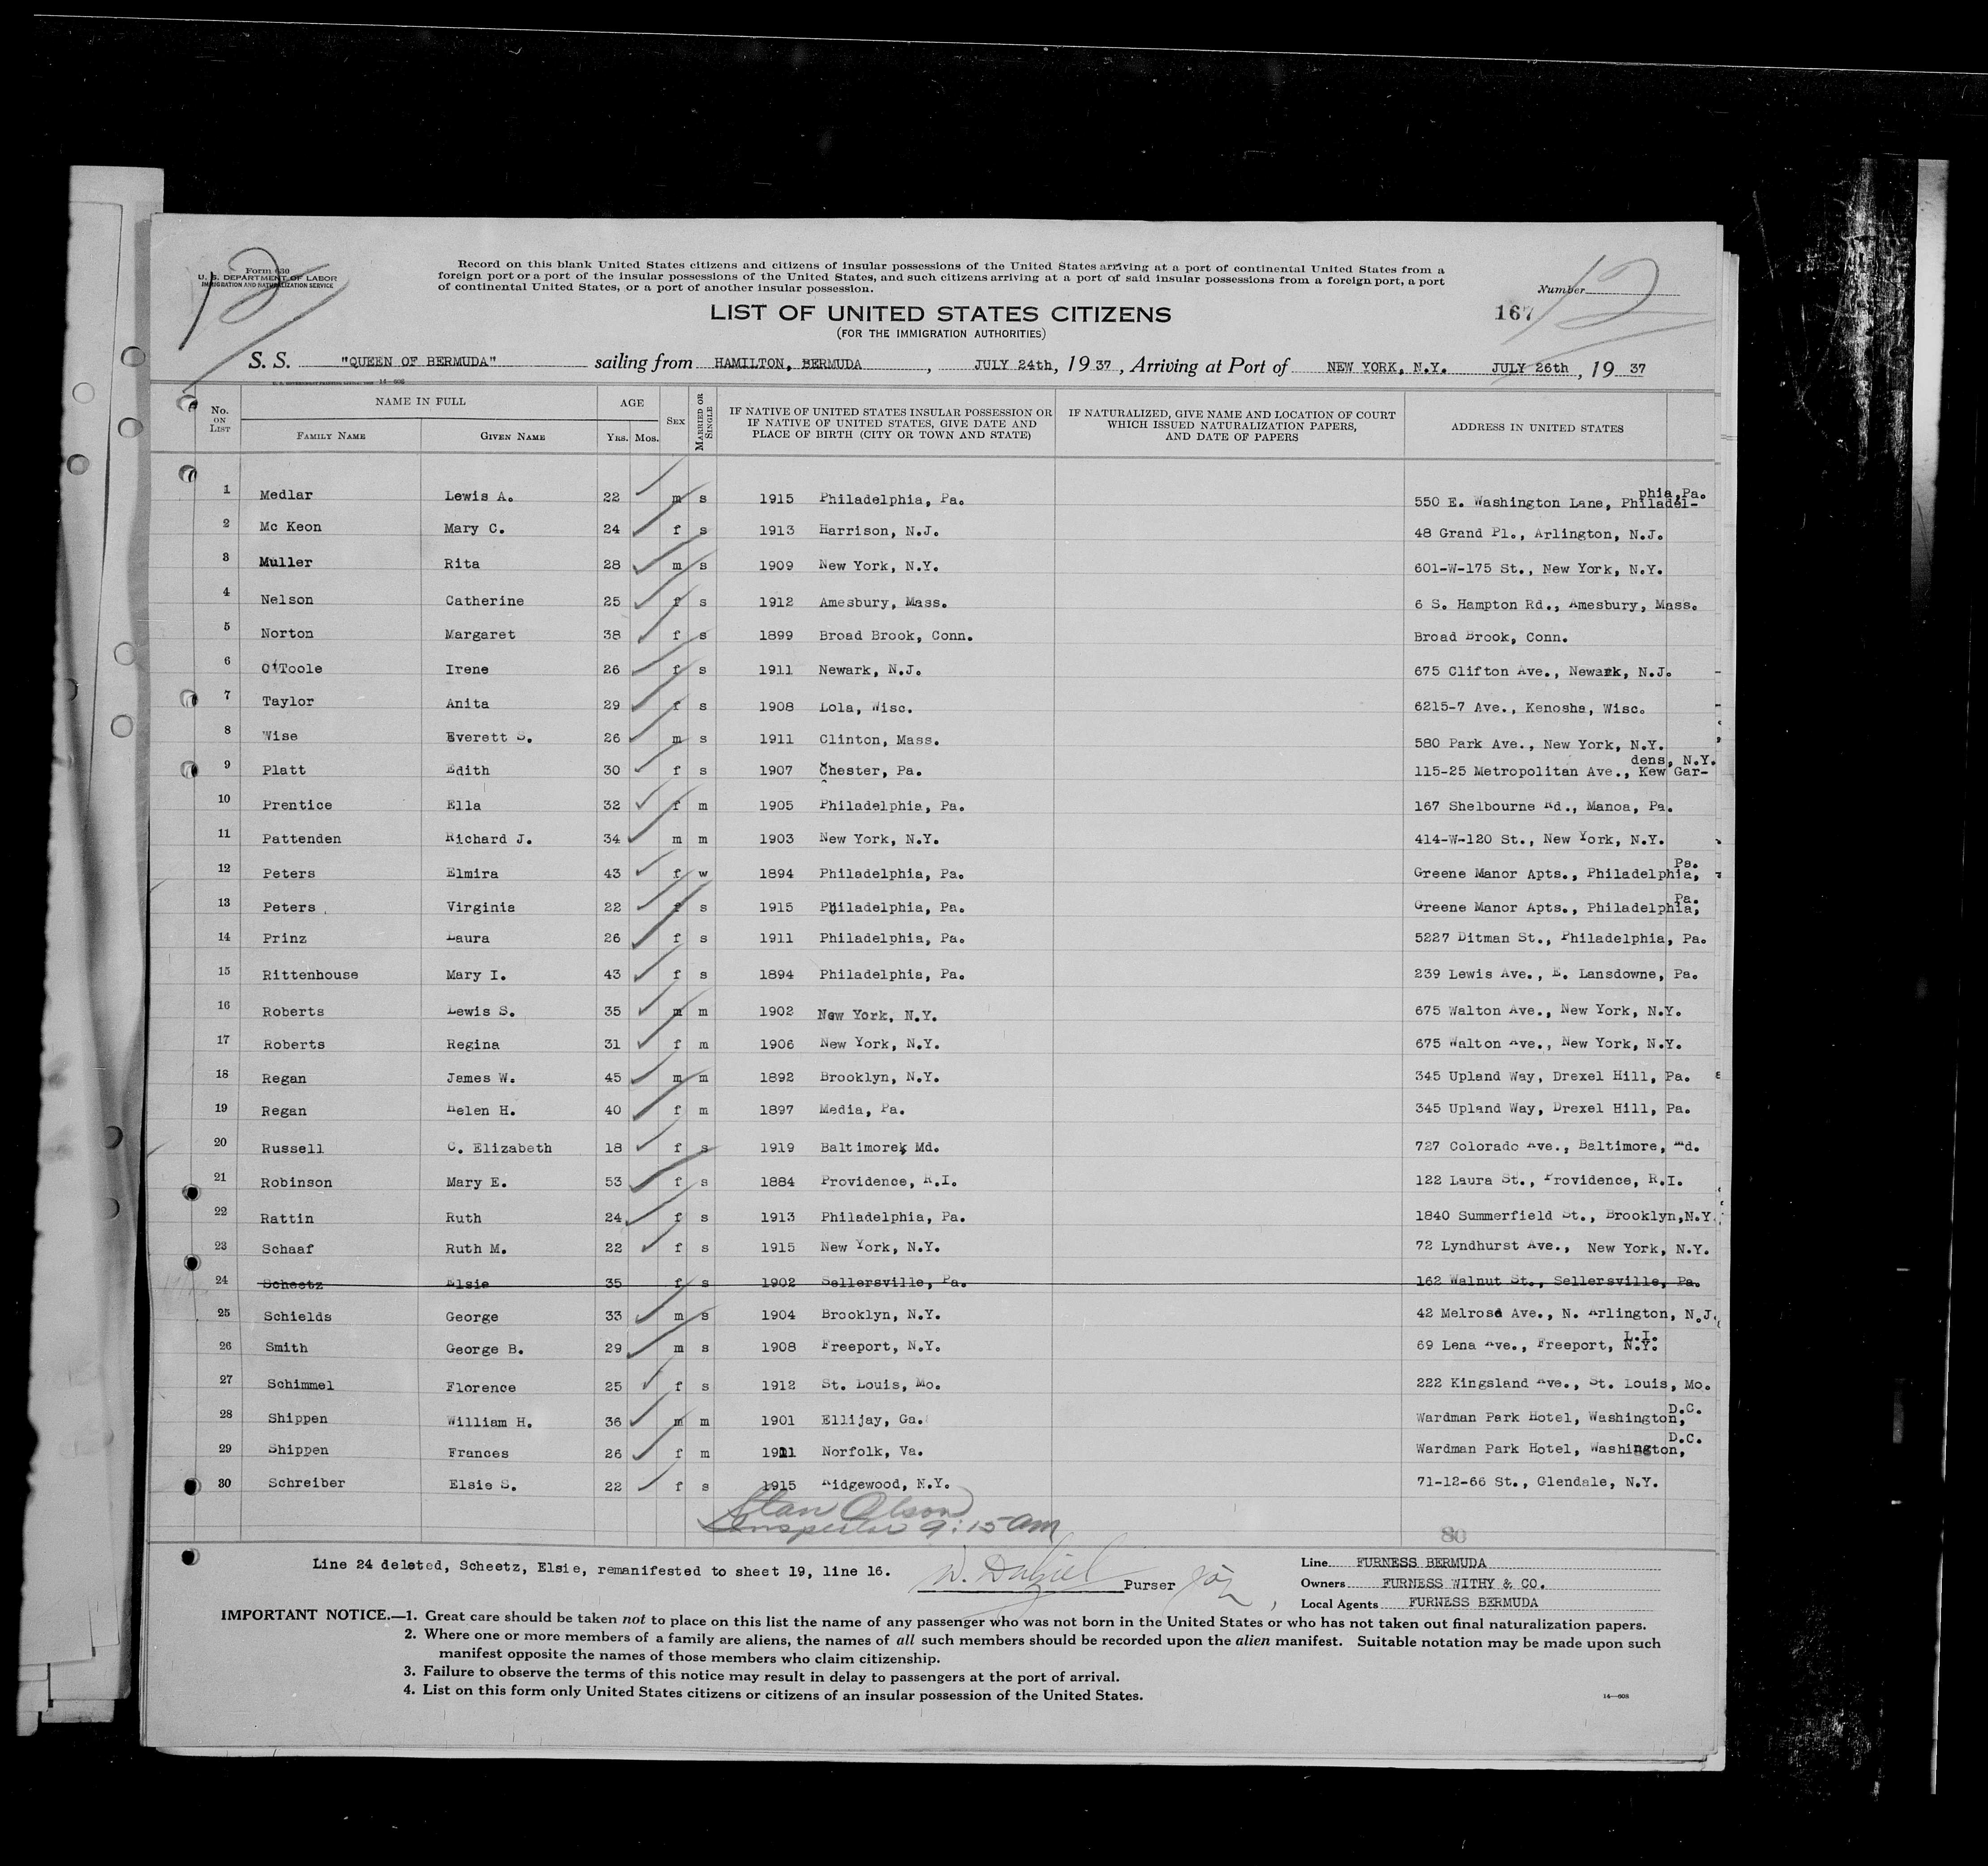 Form 630
U. S. DEPARTMENT OF LABOR
IMMIGRATION AND NATURALIZATION SERVICE
12
Record on this blank United States citizens and citizens of insular possessions of the United States arriving at a port of continental United States from a
foreign port or a port of the insular possessions of the United States, and such citizens arriving at a port of said insular possessions from a foreign port, a port
of continental United States, or a port of another insular possession.
Number 12
LIST OF UNITED STATES CITIZENS
167
(FOR THE IMMIGRATION AUTHORITIES)
S. S. "QUEEN OF BERMUDA" sailing from HAMILTON, BERMUDA, JULY 24th, 19 37, Arriving at Port of NEW YORK, N.Y. JULY 26th, 19 37
No. ON LIST NAME IN FULL FAMILY NAME GIVEN NAME AGE YRS. MOS. SEX MARRIED OR SINGLE IF NATIVE OF UNITED STATES INSULAR POSSESSION OR IF NATIVE OF UNITED STATES, GIVE DATE AND PLACE OF BIRTH (CITY OR TOWN AND STATE) IF NATURALIZED, GIVE NAME AND LOCATION OF COURT WHICH ISSUED NATURALIZATION PAPERS, AND DATE OF PAPERS ADDRESS IN UNITED STATES
1 Medlar Lewis A. 22 m s 1915 Philadelphia, Pa. 550 E. Washington Lane, Philadel-phia,Pa.
2 Mc Keon Mary C. 24 f s 1913 Harrison, N.J. 48 Grand Pl., Arlington, N.J.
3 Muller Rita 28 m s 1909 New York, N.Y. 601-W-175 St., New York, N.Y.
4 Nelson Catherine 25 f s 1912 Amesbury, Mass. 6 S. Hampton Rd., Amesbury, Mass.
5 Norton Margaret 38 f s 1899 Broad Brook, Conn. Broad Brook, Conn.
6 O'Toole Irene 26 f s 1911 Newark, N.J. 675 Clifton Ave., Newark, N.J.
7 Taylor Anita 29 f s 1908 Lola, Wisc. 6215-7 Ave., Kenosha, Wisc.
8 Wise Everett S. 26 m s 1911 Clinton, Mass. 580 Park Ave., New York, N.Y.
9 Platt Edith 30 f s 1907 Chester, Pa. 115-25 Metropolitan Ave., Kew Gar-dens, N.Y.
10 Prentice Ella 32 f m 1905 Philadelphia, Pa. 167 Shelbourne Rd., Manoa, Pa.
11 Pattenden Richard J. 34 m m 1903 New York, N.Y. 414-W-120 St., New York, N.Y.
12 Peters Elmira 43 f w 1894 Philadelphia, Pa. Greene Manor Apts., Philadelphia, Pa.
13 Peters Virginia 22 f s 1915 Philadelphia, Pa. Greene Manor Apts., Philadelphia, Pa.
14 Prinz Laura 26 f s 1911 Philadelphia, Pa. 5227 Ditman St., Philadelphia, Pa.
15 Rittenhouse Mary I. 43 f s 1894 Philadelphia, Pa. 239 Lewis Ave., E. Lansdowne, Pa.
16 Roberts Lewis S. 35 m m 1902 New York, N.Y. 675 Walton Ave., New York, N.Y.
17 Roberts Regina 31 f m 1906 New York, N.Y. 675 Walton Ave., New York, N.Y.
18 Regan James W. 45 m m 1892 Brooklyn, N.Y. 345 Upland Way, Drexel Hill, Pa.
19 Regan Helen H. 40 f m 1897 Media, Pa. 345 Upland Way, Drexel Hill, Pa.
20 Russell C. Elizabeth 18 f s 1919 Baltimore, Md. 727 Colorado Ave., Baltimore, Md.
21 Robinson Mary E. 53 f s 1884 Providence, R.I. 122 Laura St., Providence, R.I.
22 Rattin Ruth 24 f s 1913 Philadelphia, Pa. 1840 Summerfield St., Brooklyn,N.Y.
23 Schaaf Ruth M. 22 f s 1915 New York, N.Y. 72 Lyndhurst Ave., New York, N.Y.
24 Scheetz Elsie 35 f s 1902 Sellersville, Pa. 162 Walnut St., Sellersville, Pa.
25 Schields George 33 m s 1904 Brooklyn, N.Y. 42 Melrose Ave., N. Arlington, N.J.
26 Smith George B. 29 m s 1908 Freeport, N.Y. 69 Lena Ave., Freeport, L.I. N.Y.
27 Schimmel Florence 25 f s 1912 St. Louis, Mo. 222 Kingsland Ave., St. Louis, Mo.
28 Shippen William H. 36 m m 1901 Ellijay, Ga. Wardman Park Hotel, Washington, D.C.
29 Shippen Frances 26 f m 1911 Norfolk, Va. Wardman Park Hotel, Washington, D.C.
30 Schreiber Elsie S. 22 f s 1915 Ridgewood, N.Y. 71-12-66 St., Glendale, N.Y.
Stan Olson
Inspector 9:15 am
80
Line 24 deleted, Scheetz, Elsie, remanifested to sheet 19, line 16. Purser
Line FURNESS BERMUDA
Owners FURNESS WITHY & CO.
Local Agents FURNESS BERMUDA
IMPORTANT NOTICE.—1. Great care should be taken not to place on this list the name of any passenger who was not born in the United States or who has not taken out final naturalization papers.
2. Where one or more members of a family are aliens, the names of all such members should be recorded upon the alien manifest. Suitable notation may be made upon such
manifest opposite the names of those members who claim citizenship.
3. Failure to observe the terms of this notice may result in delay to passengers at the port of arrival.
4. List on this form only United States citizens or citizens of an insular possession of the United States.
14—608